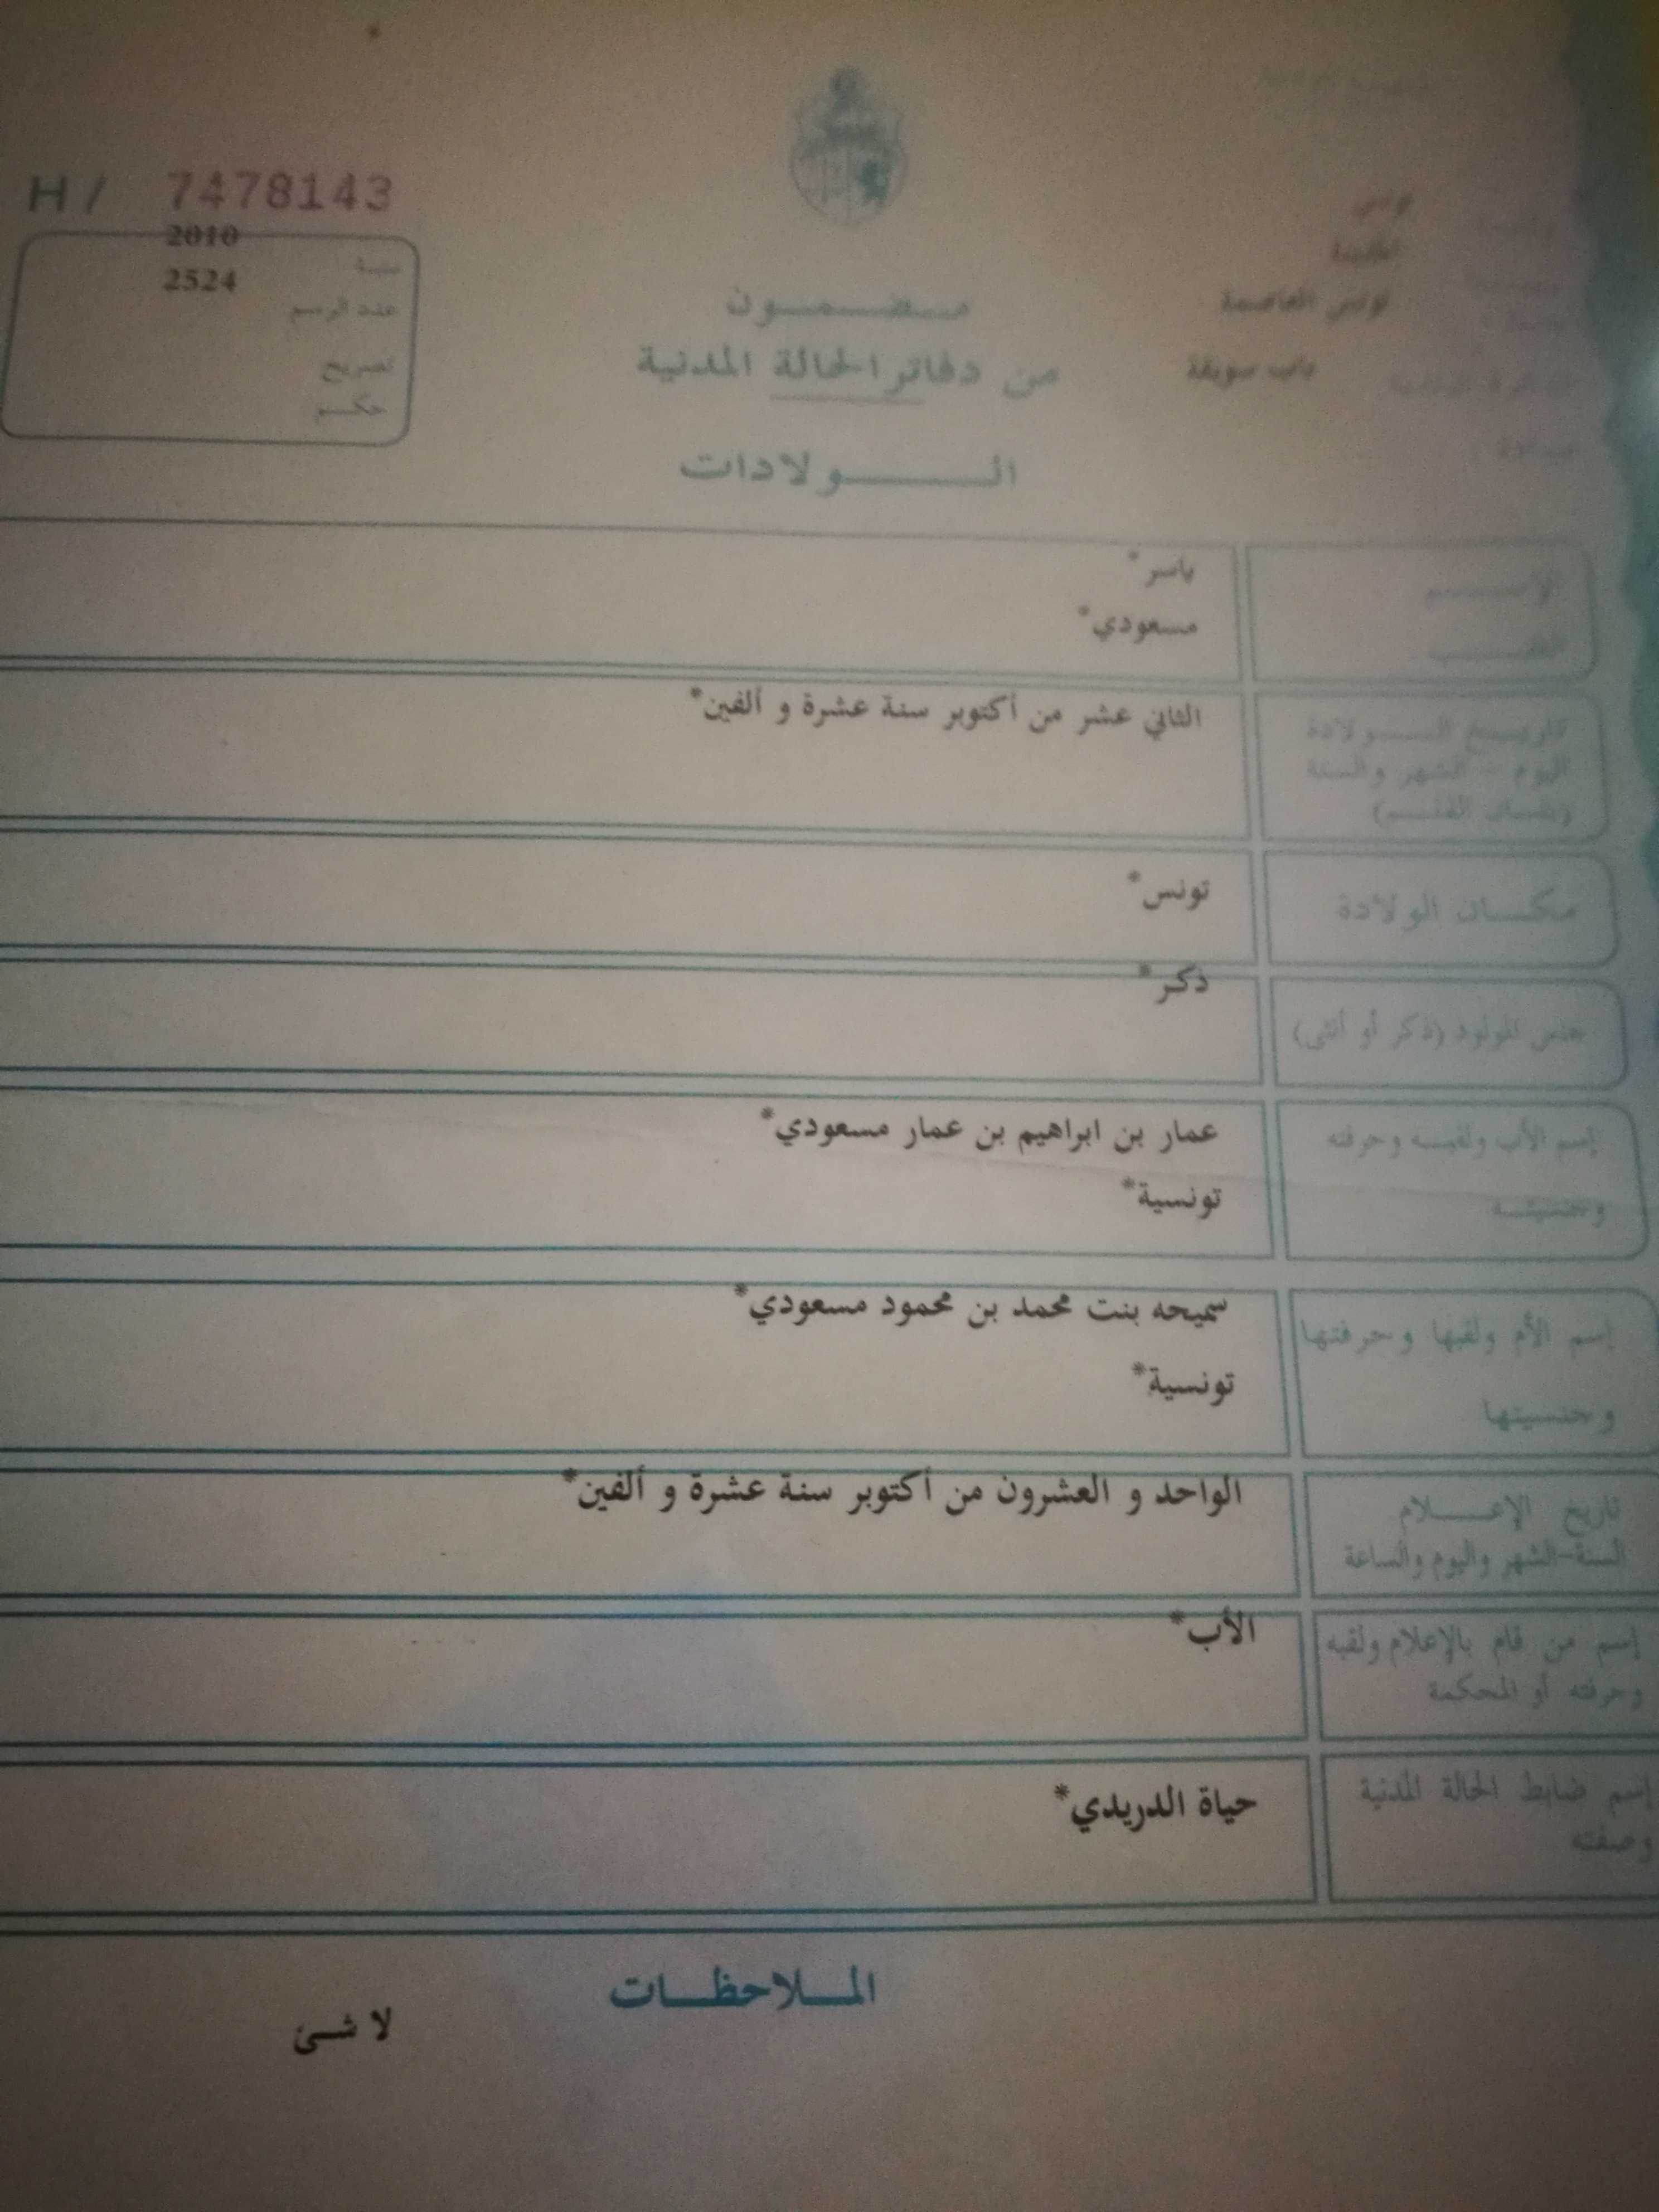 H / 7478143
2010
سنة
2524
عدد الرسم
تصريح
حكم
تونس
المدينة
تونس العاصمة
باب سويقة
مضمون
من دفاتر الحالة المدنية
الولادات
الإسم
ياسر*
اللقب
مسعودي*
تاريخ الولادة
اليوم - الشهر والسنة
(بلسان القلم)
الثاني عشر من أكتوبر سنة عشرة و ألفين*
مكان الولادة
تونس*
جنس المولود (ذكر أو أنثى)
ذكر*
إسم الأب ولقبه وحرفته
عمار بن ابراهيم بن عمار مسعودي*
وجنسيته
تونسية*
إسم الأم ولقبها وحرفتها
سميحه بنت محمد بن محمود مسعودي*
وجنسيتها
تونسية*
تاريخ الإعلام
السنة-الشهر واليوم والساعة
الواحد و العشرون من أكتوبر سنة عشرة و ألفين*
إسم من قام بالإعلام ولقبه
وحرفته أو المحكمة
الأب*
إسم ضابط الحالة المدنية
وصفته
حياة الدريدي*
الملاحظات
لا شئ